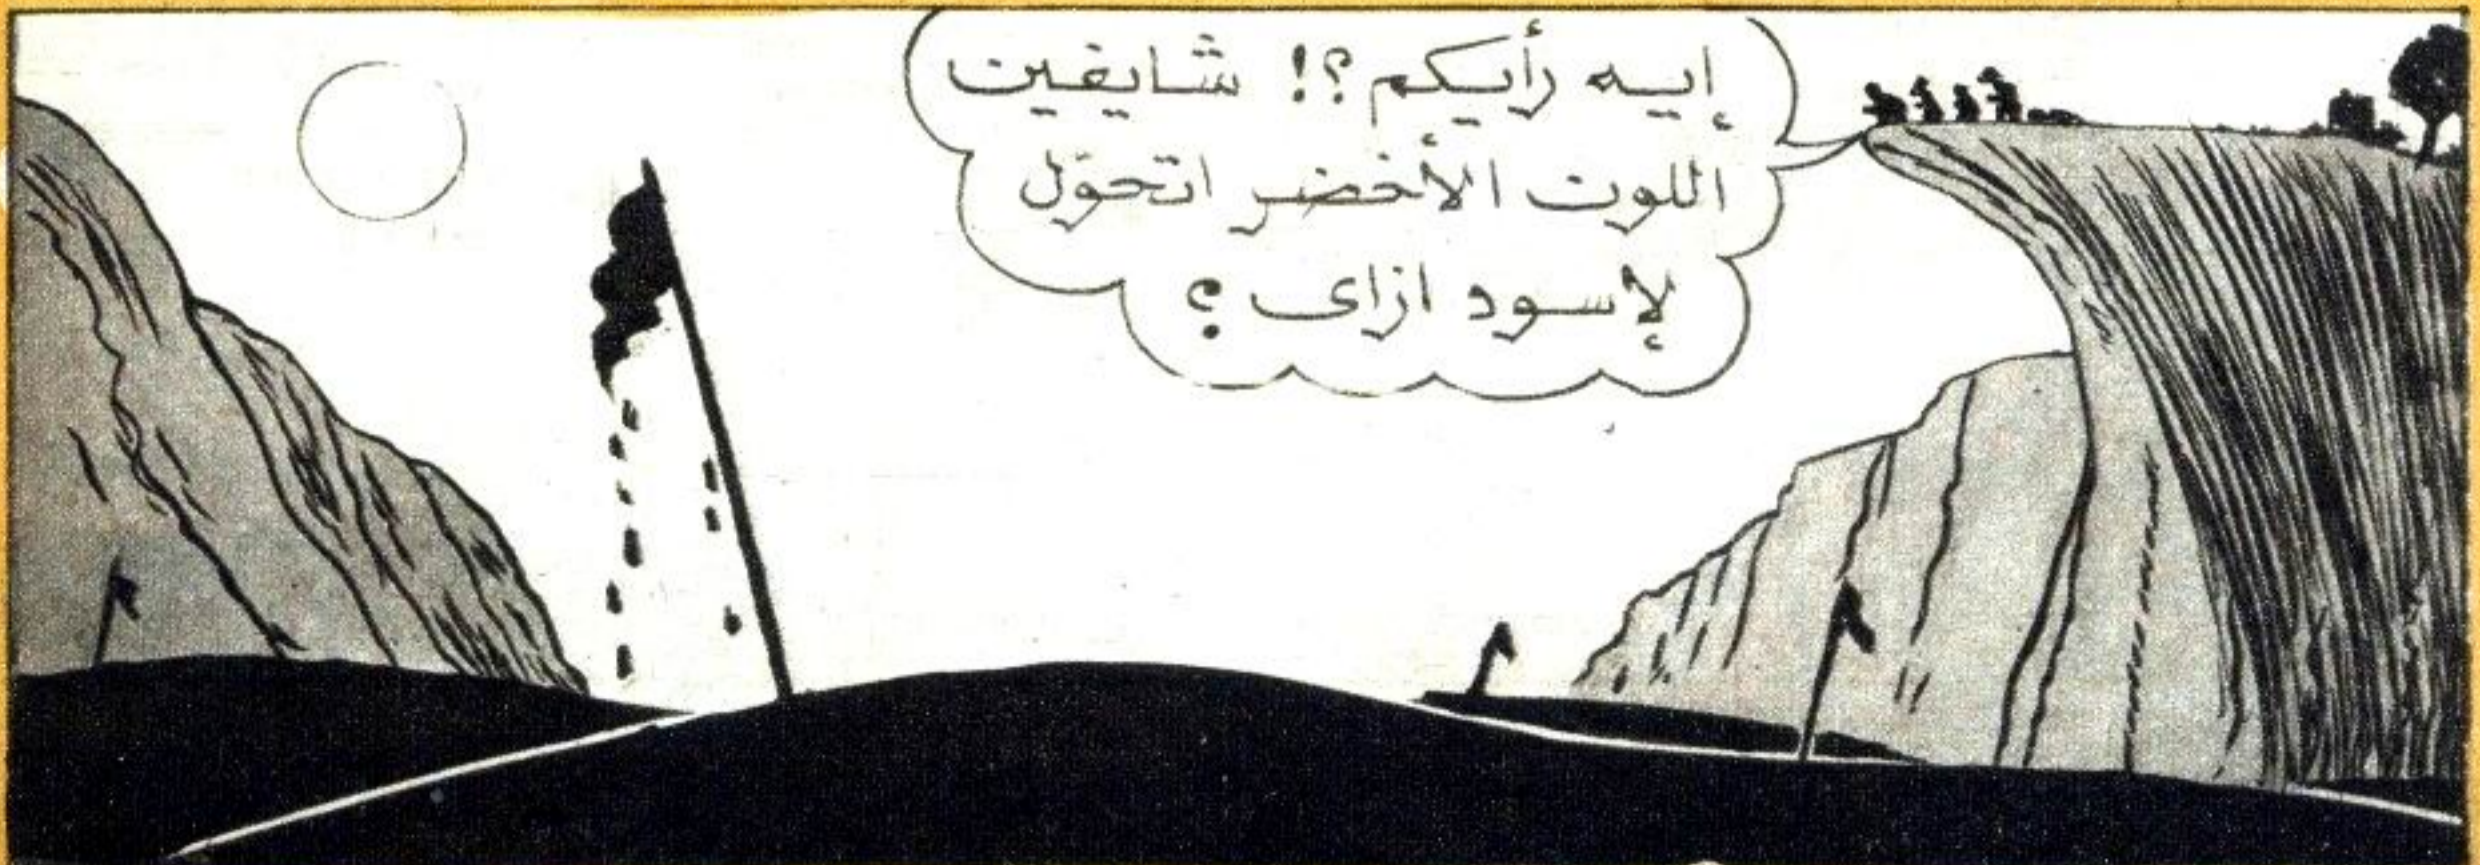 إيه رأيكم؟! شايفين
اللون الأخضر اتحوّل
لإسود ازاى؟